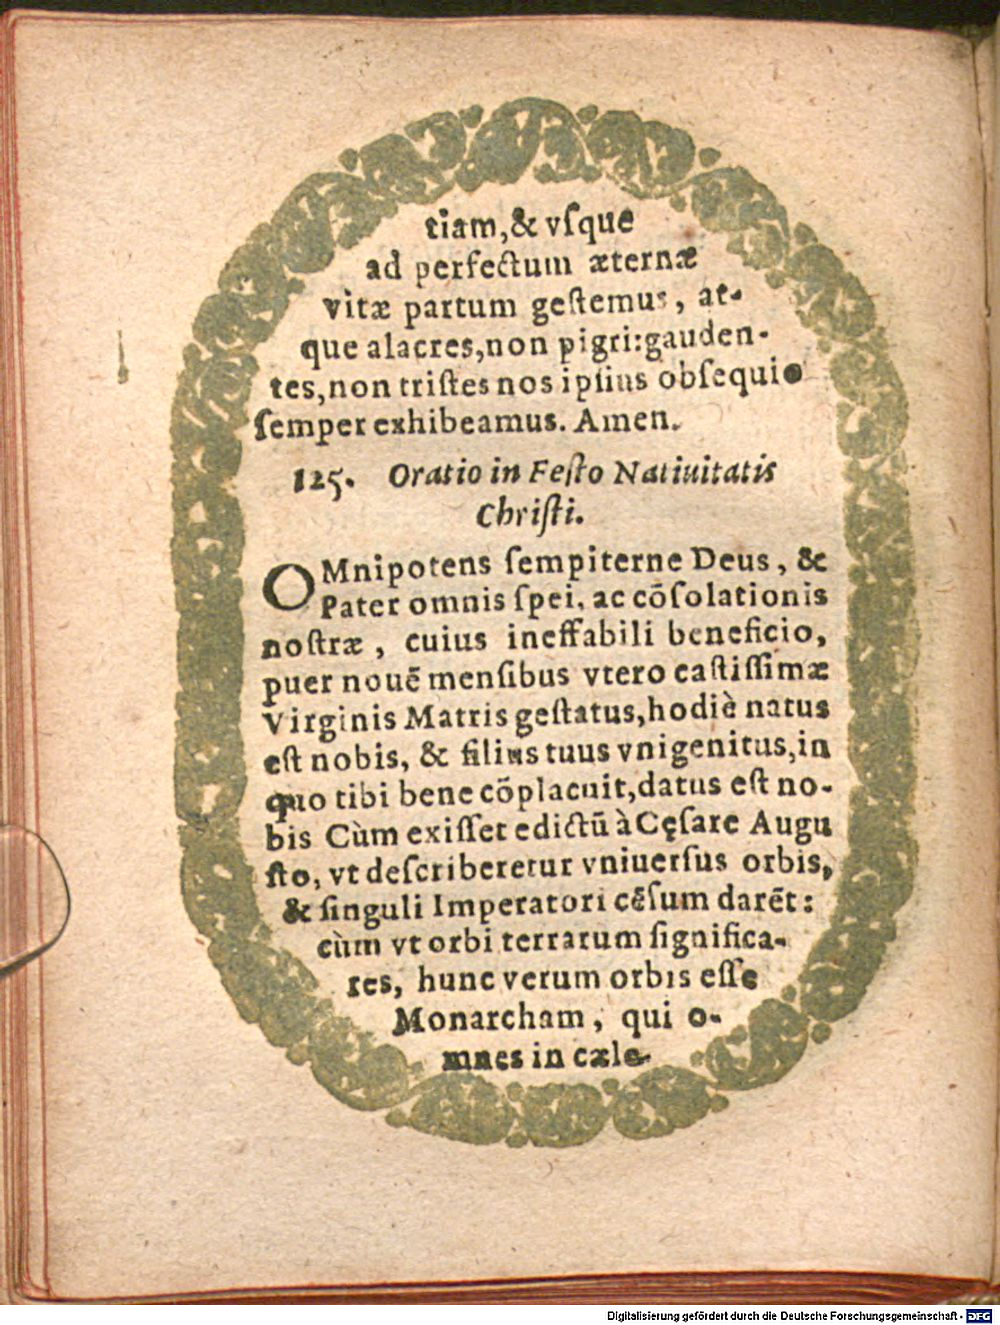 tiam,& vſque
ad perfectum æternæ
vitæ partum geſtemus, at-
que alacres,non pigri:gauden-
tes,non triſtes nos ipſius obſequio
ſemper exhibeamus. Amen.
125. Oratio in Feſto Natiuitatis
Chriſti.
OMnipotens ſempiterne Deus, &
Pater omnis ſpei, ac cõſolationis
noſtræ, cuius ineffabili beneficio,
puer nouẽ menſibus vtero caſtiſſimæ
Virginis Matris geſtatus,hodiè natus
eſt nobis, & filius tuus vnigenitus,in
quo tibi bene cõplacuit,datus eſt no-
bis Cùm exiſſet edictũ à Cęſare Augu
ſto, vt deſcriberetur vniuerſus orbis,
& ſinguli Imperatori cẽſum darẽt:
cùm vt orbi terrarum ſignifica-
res, hunc verum orbis eſſe
Monarcham, qui o-
mnes in cæle-
Digitalisierung gefördert durch die Deutsche Forschungsgemeinschaft - DFG